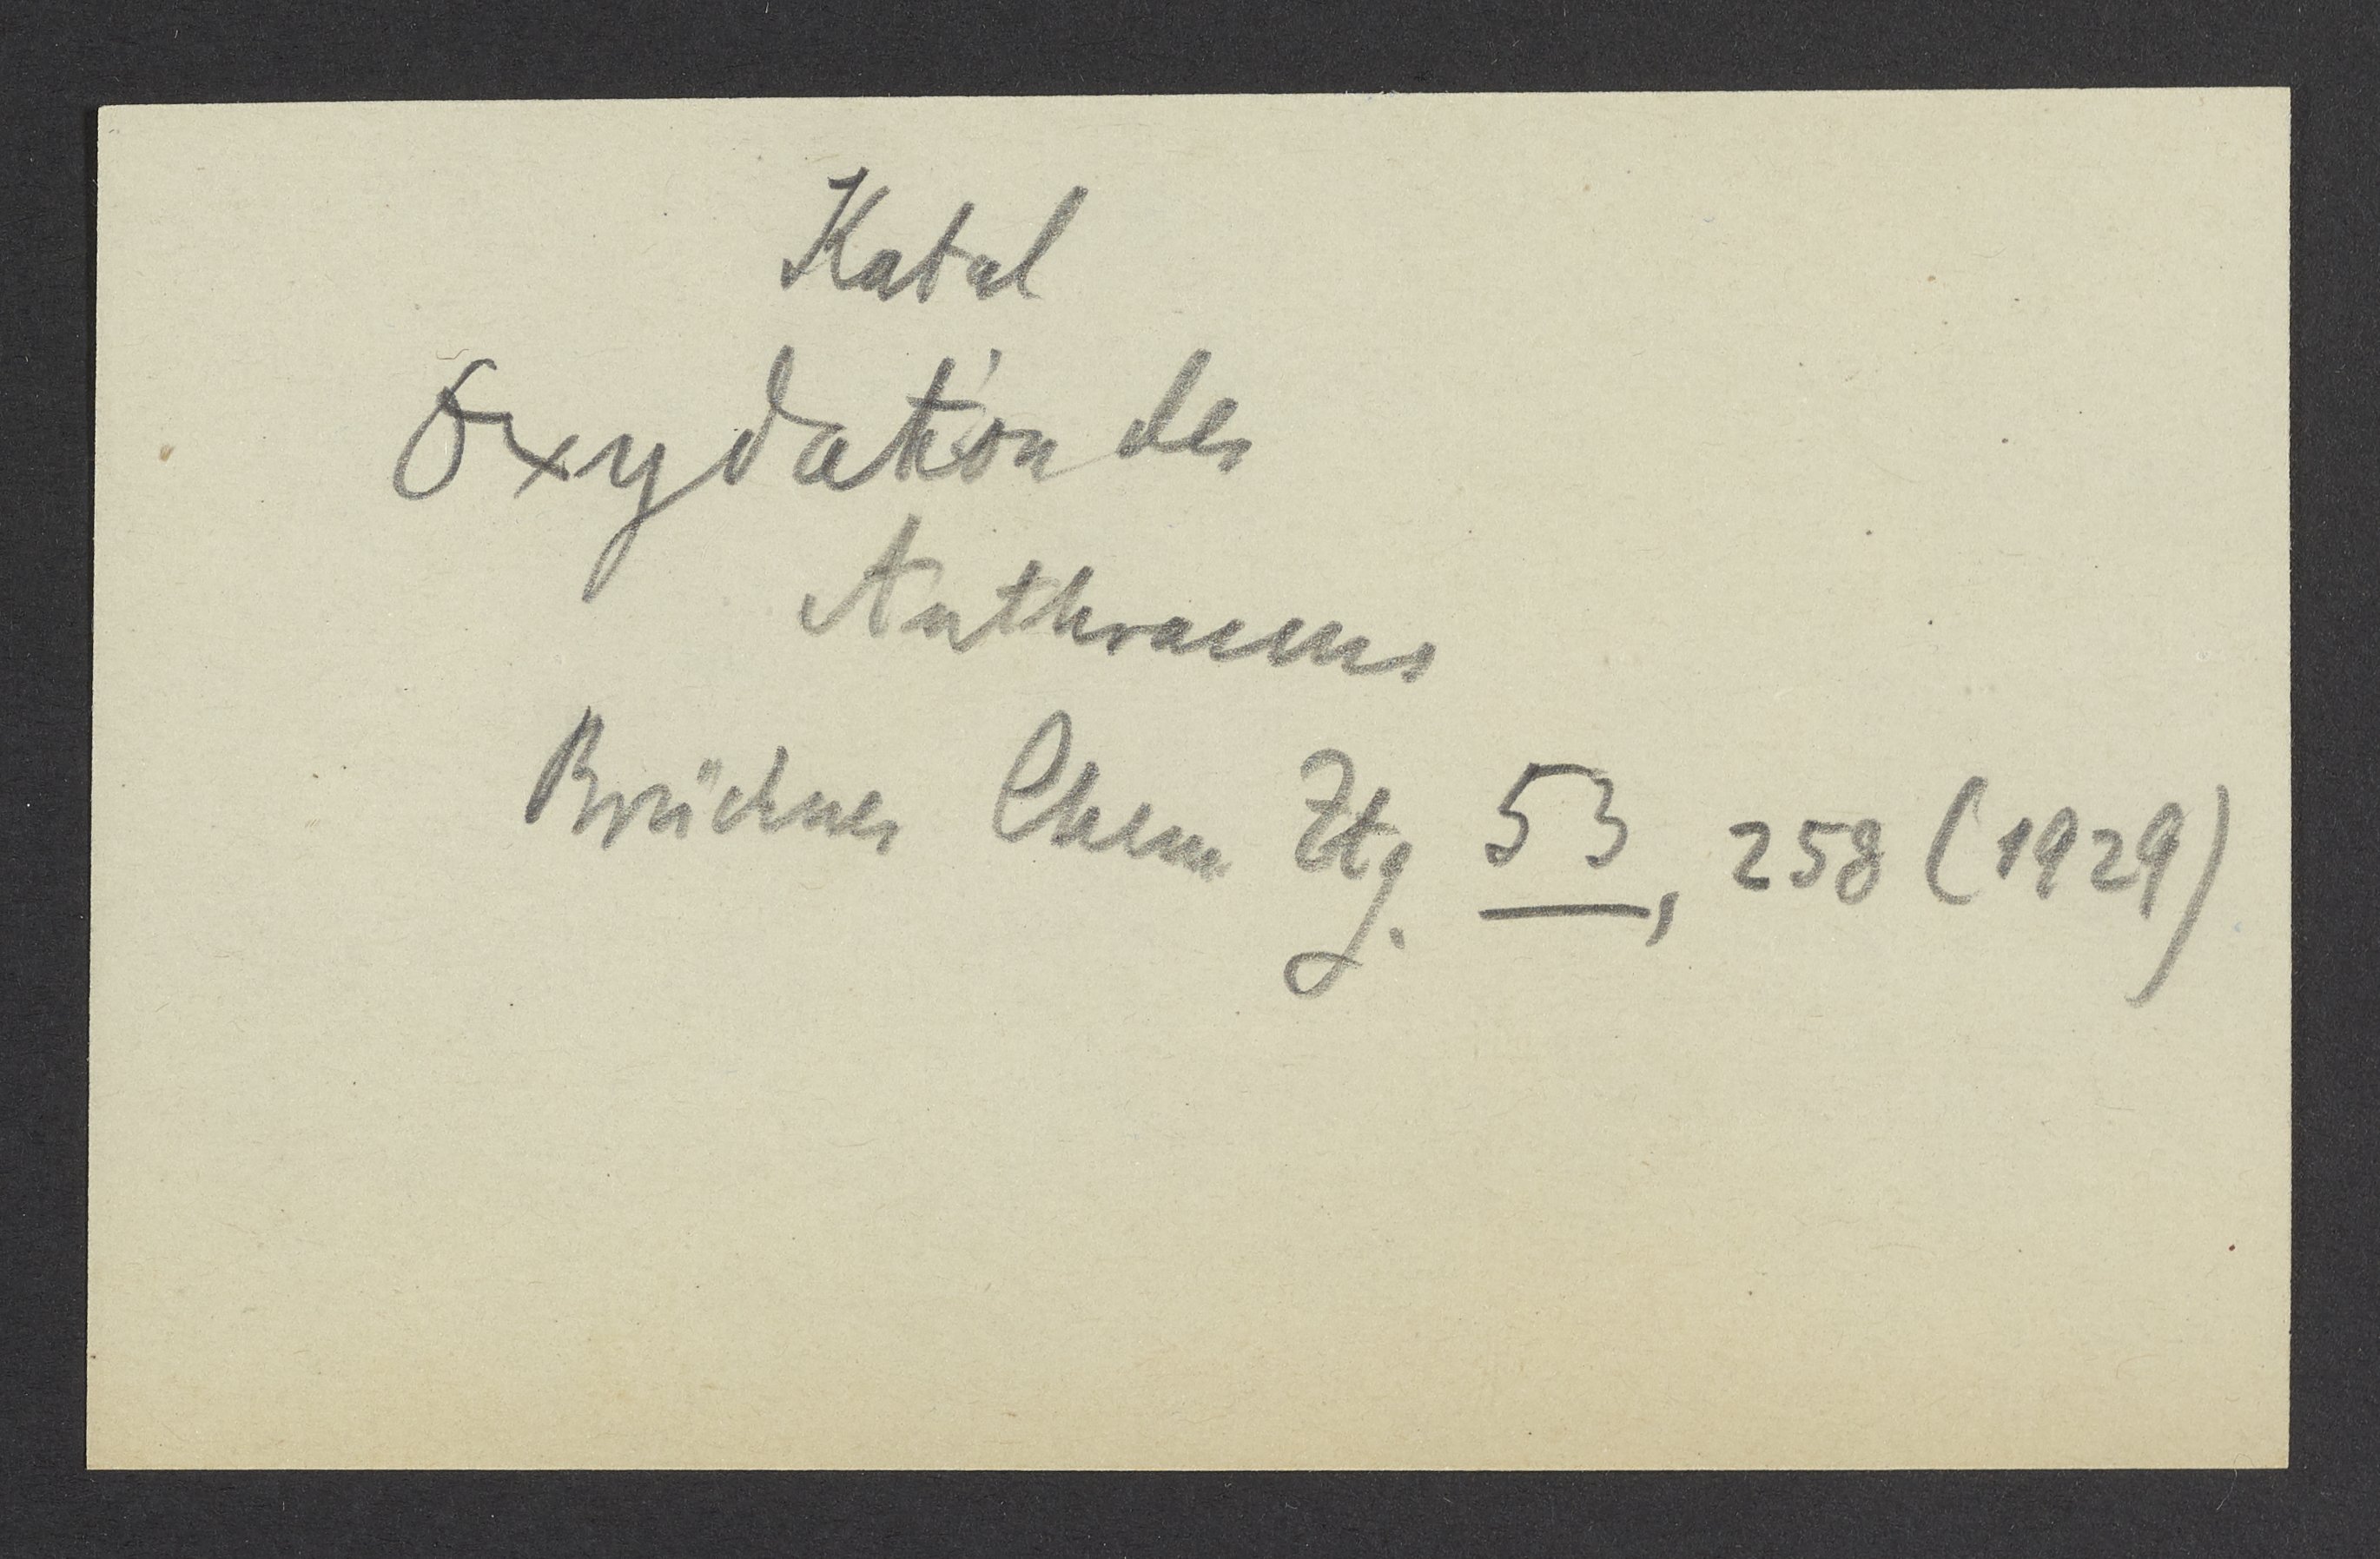 Katal
Oxydation des
Anthracens
Brückner Chem Ztg. 53, 258 (1929)